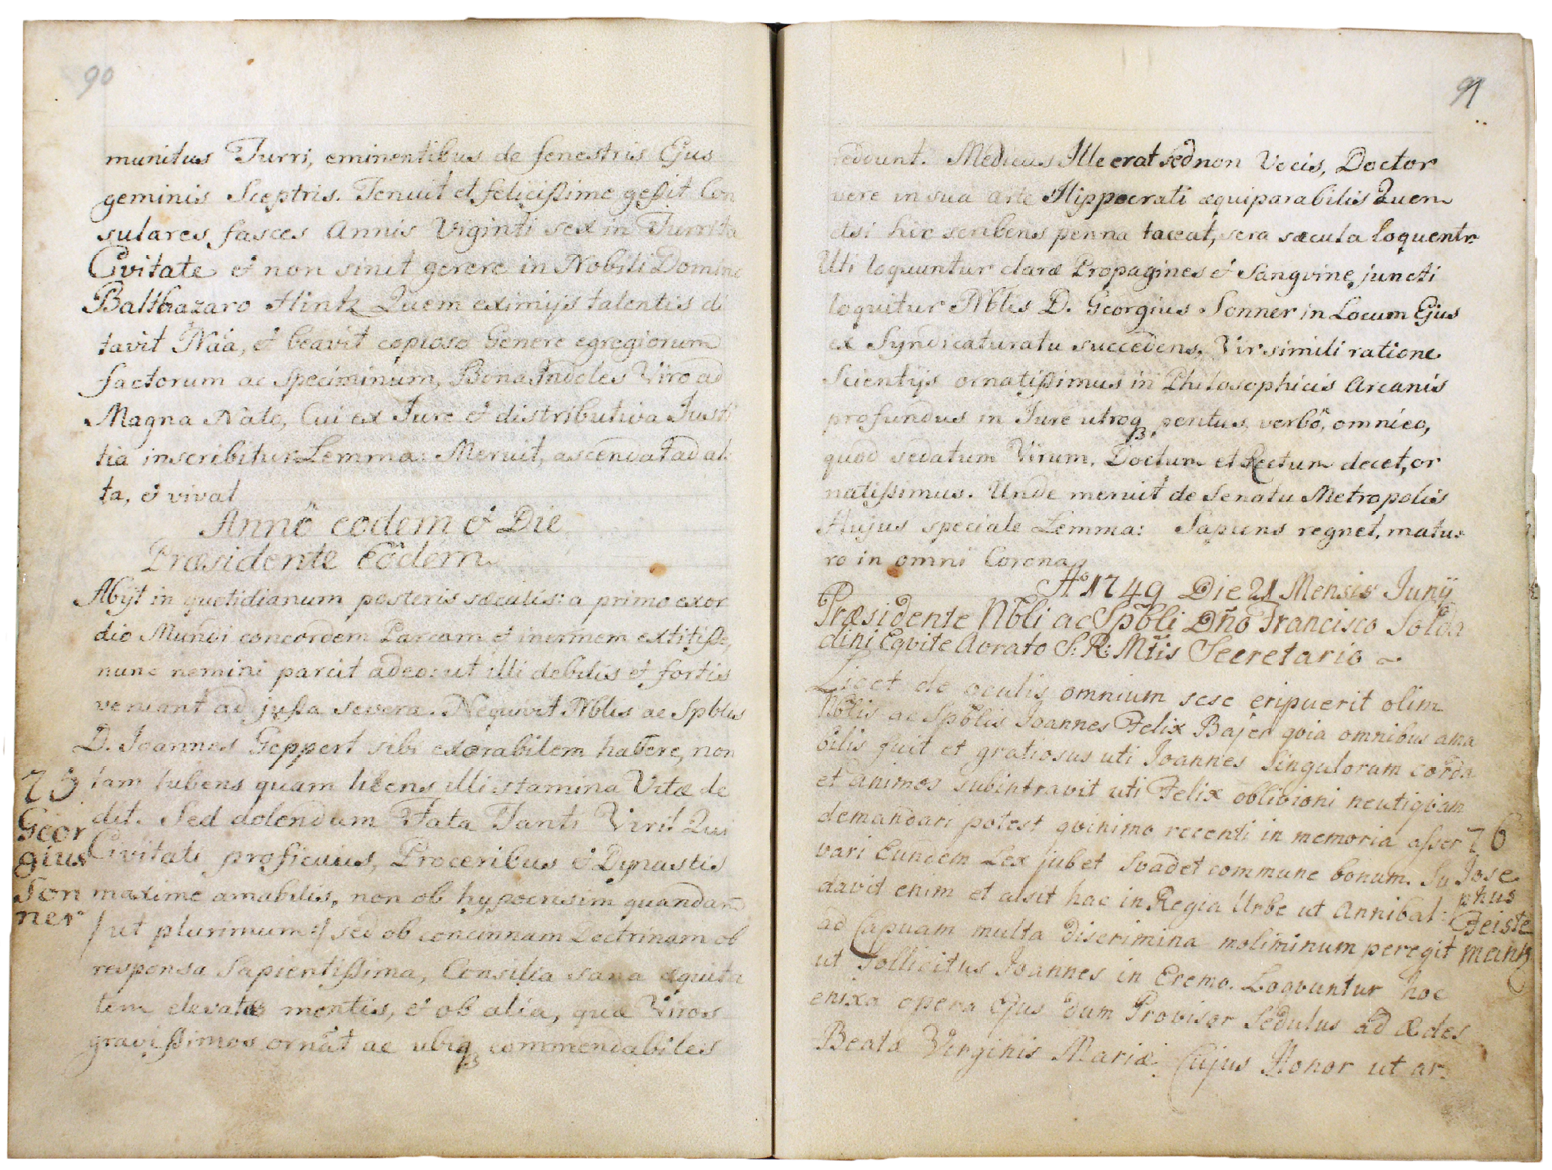 90
munitus Turri, eminentibus de fenestris Ejus
geminis Sceptris. Tenuit et felicißime geßit Con
sulares fasces Annis Viginti sex in Turrita
Civitate et non sinit gerere in Nobili Domino
Balthazaro Hintz Quem eximijs talentis di
tavit Nãa, et beavit copioso Genere egregiorum
factorum ac speciminum, Bona Indoles Viro ad
Magna Nato, Cui ex Jure et distributiva Justi
tia inscribitur Lemma: Meruit, ascendat ad al
ta, et vivat
Annö eodem et Die
Præsidente Eödem
Abijt in quotidianum posteris sæculis: a primo exor
dio Mundi concordem Parcam et inermem extitiße,
nunc nemini parcit adeo: ut illi debilis et fortis
veniant ad jußa severa. Nequivit Nblis ac Spblis
D. Joannes Geppert sibi exorabilem habere, non
tam lubens quam libens illi stamina Vitæ de
dit. Sed dolendum Fata Tanti Viri! Qui
Civitati proficuus, Proceribus et Dynastis
maxime amabilis, non ob hypocrisim quandam
/ut plurimum:/ sed ob concinnam Doctrinam ob
responsa Sapientißima, Consilia sana æquita
tem elevatæ mentis, et ob alia, quæ Viros
gravißimos ornãt ac ubiq3 commendabiles
75
Geor
gius
Son
ner
91
reddunt. Medicus Ille erat sed non Vocis, Doctor
vere in sua arte Hippocrati æquiparabilis Quem
etsi hic scribens penna taceat, sera sæcula loquentr
Uti loquuntur claræ Propagines et Sangvine juncti
loquitur Nblis D. Georgius Sonner in Locum Ejus
ex Syndicaturatu succedens, Vir simili ratione
Scientijs ornatißimus in Philosophicis Arcanis
profundus in Jure utroq3 peritus, verbö, omni eo,
quod sedatum Virum, Doctum et Rectum decet, or
natißimus. Unde meruit de Senatu Metropolis
Hujus speciale Lemma: Sapiens regnet, matu
ro in omni Corona
Aö 1749 Die 21 Mensis Junij
Præsidente Nbli ac Spbli Dño Francisco Solda
dini Eqvite Aurato S: R: Mtis Secretario
Licet de oculis omnium sese eripuerit olim
Nblis ac Spblis Joannes Felix Bajer qvia omnibus ama
bilis fuit et gratiosus uti Joannes Singulorum corda
et animos subintravit uti Felix oblivioni neutiqvam
demandari potest qvinimo recenti in memoria asser
vari Eundem Lex jubet Svadet commune bonum. Su
davit enim et alsit hac in Regia Urbe ut Annibal
ad Capuam multa discrimina moliminum peregit
ut Sollicitus Joannes in Eremo. Loqvuntur hoc
enixa opera Ejus dum Provisor Sedulus ad Ædes
Beatæ Virginis Mariæ Cujus Honor ut ar
76
Jose
phus
Feiste
mantl